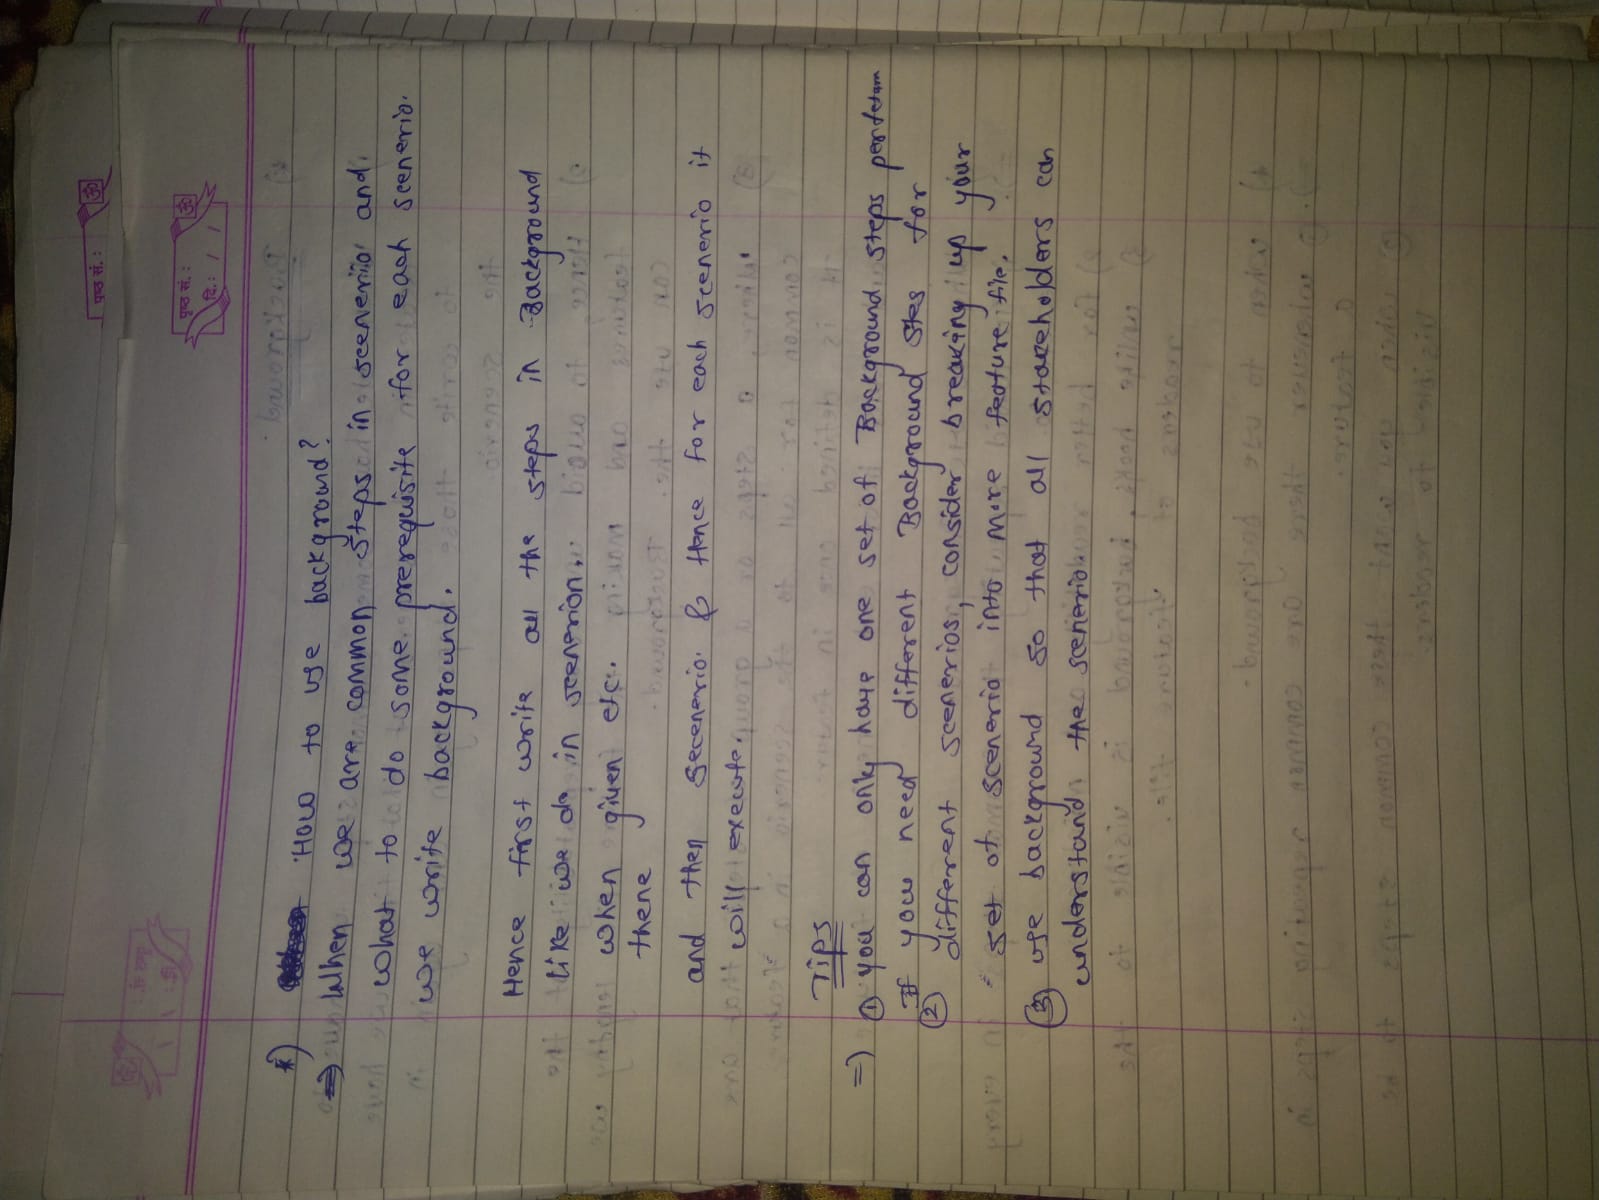 पृष्ठ सं. :
पृष्ठ सं. :
दि. : / /
*) How to use background?
=> When we are common steps in scenerio and
what to do some prerequisite for each scenerio.
we write background.
Hence first write all the steps in Background
like we do in scenerion..
when given etc.
thene
and then secenerio. & Hence for each scenerio it
will execute.
Tips
=) ① you can only have one set of Background steps per
If you need different Background stes for
② different scenerios, consider breaking up your
set of scenerio into more feature file.
③ use background so that all stakeholders can
understand the scenerio.